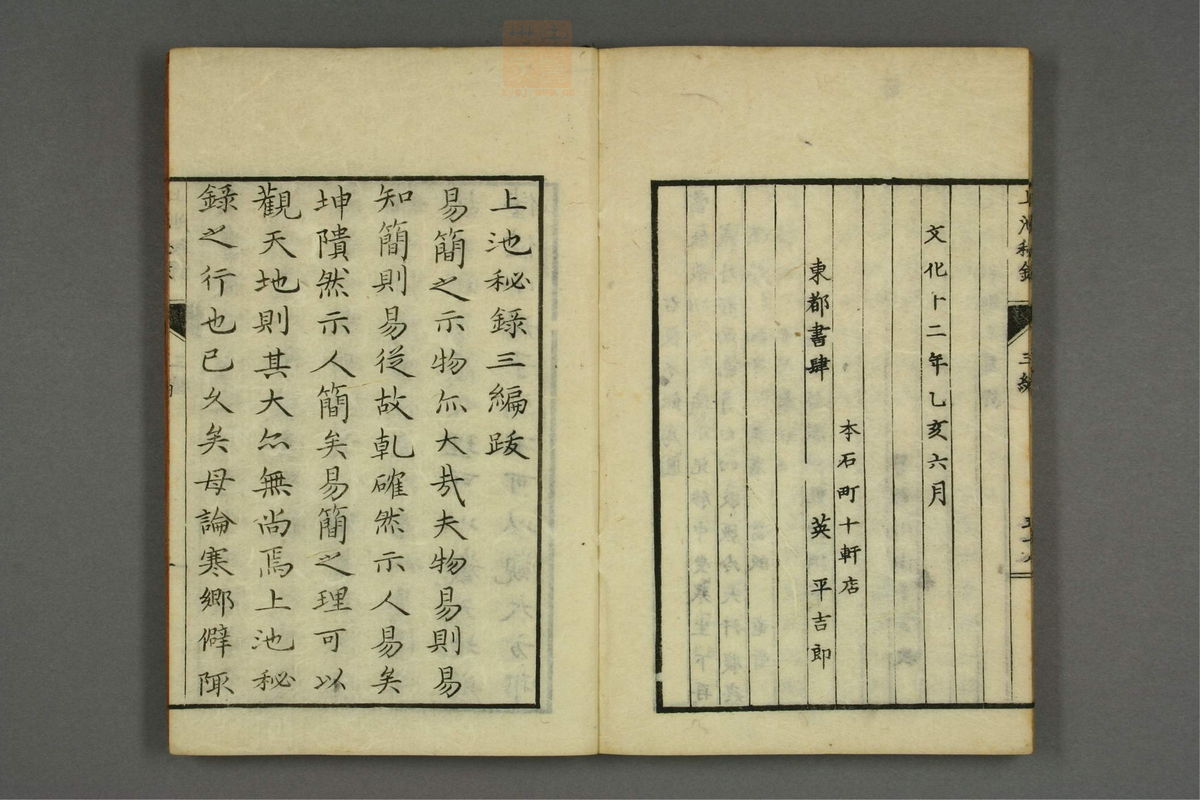 文化十二年乙亥六月
本石町十軒店
東都書肆 英平吉郎
上池秘錄三編跋
易簡之示物尒大哉夫物易則易
知簡則易從故乾確然示人易矣
坤隤然示人簡矣易簡之理可以
觀天地則其大尒無尚焉上池秘
錄之行也已久矣毋論寒鄉僻陬